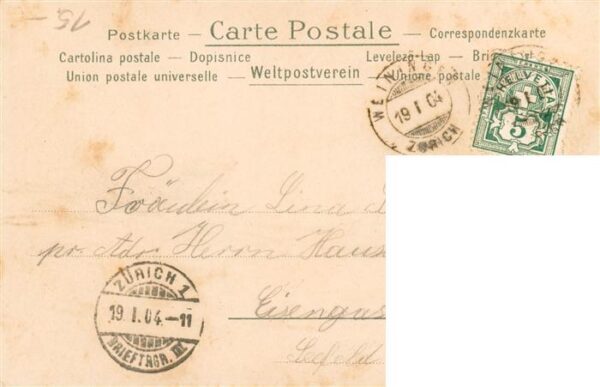 15.-
Postkarte — Carte Postale — Correspondenzkarte
Cartolina postale — Dopisnice Levelező-Lap — Bri
Union postale universelle — Weltpostverein — Unione postale
WEININGEN
19 I 04
ZÜRICH
HELVETIA
5
Fräulein Lina
pr. Adr. Herrn Haus
Eisengas
ZÜRICH 1
19. I. 04.–11
BRIEFTRGR. III